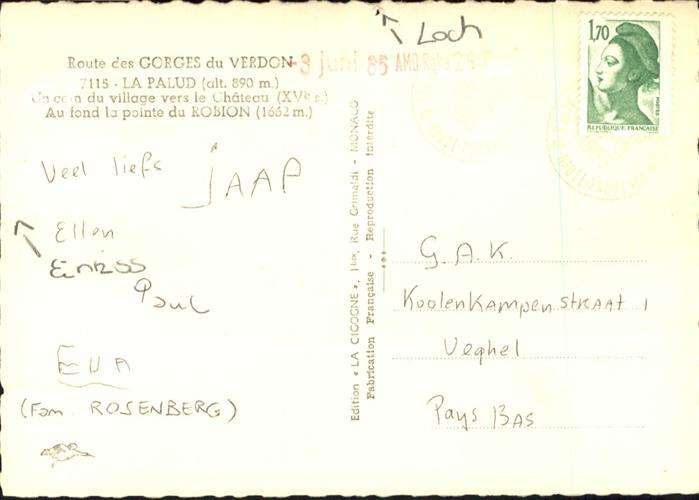 Route des GORGES du VERDON
7115 - LA PALUD (alt. 890 m.)
Un coin du village vers le Château (XVe s.)
Au fond la pointe du ROBION (1662 m.)
-3 juni 85
Loch
1,70
REPUBLIQUE FRANÇAISE
Veel liefs
JAAP
Ellen
Paul
EVA
(Fam. ROSENBERG)
Edition « LA CIGOGNE », 1bis, Rue Grimaldi - MONACO
Fabrication Française - Reproduction Interdite
G.A.K.
Koolenkampenstraat 1
Veghel
Pays Bas